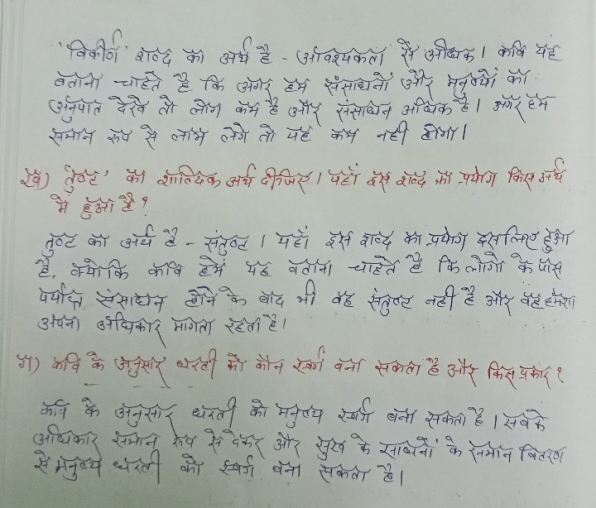 'विकीर्ण' शब्द का अर्थ है - आवश्यकता से अधिक। कवि यह
बताना चाहते है कि अगर हम संसाधनों और मनुष्यों का
अनुपात देखे तो लोग कम है और संसाधन अधिक है। अगर हम
समान रूप से लाभ लेंगे तो यह कम नही होगा।
ख) तुष्ट' का शाब्दिक अर्थ दीजिए। यहाँ इस शब्द का प्रयोग किस अर्थ
मे हुआ है?
तुष्ट का अर्थ है - संतुष्ट। यहाँ इस शब्द का प्रयोग इसलिए हुआ
है, क्योकि कवि हमें यह बताना चाहते है कि लोगो के पास
पर्याप्त संसाधन होने के बाद भी वह संतुष्ट नही है और वह हमेशा
अपना अधिकार मांगता रहता है।
ग) कवि के अनुसार धरती को कौन स्वर्ग बना सकता है और किस प्रकार?
कवि के अनुसार धरती को मनुष्य स्वर्ग बना सकता है। सबके
अधिकार समान रूप से देकर और सुख के साधनों के समान वितरण
से मनुष्य धरती को स्वर्ग बना सकता है।